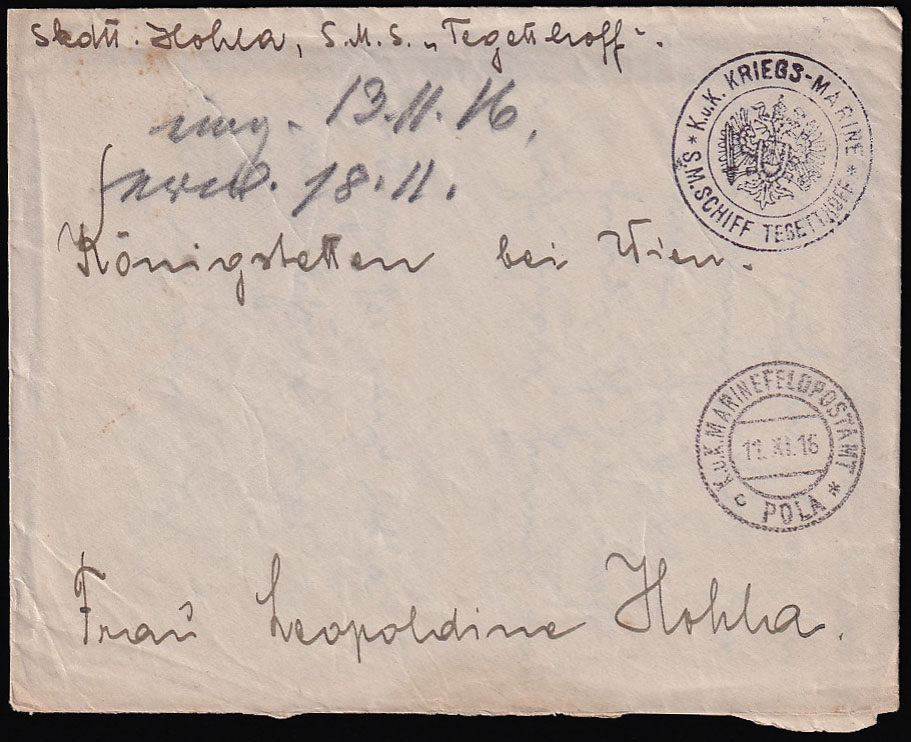 Skdtt. Hohla, S.M.S. „Tegetthoff“.
K.u.K. KRIEGS-MARINE
* S.M. SCHIFF TEGETTHOFF *
13.11.16.
18.11.
Königstetten bei Wien.
K.u.K. MARINEFELDPOSTAMT
XI.16
c POLA *
Frau Leopoldine Hohla.